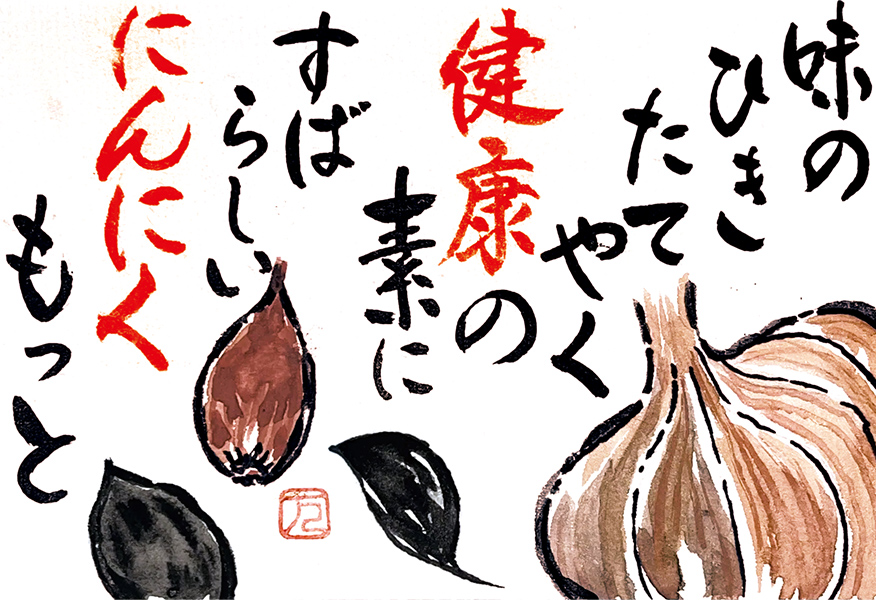 味の
ひき
たて
やく
健康の
素に
すば
らしい
にんにく
もっと